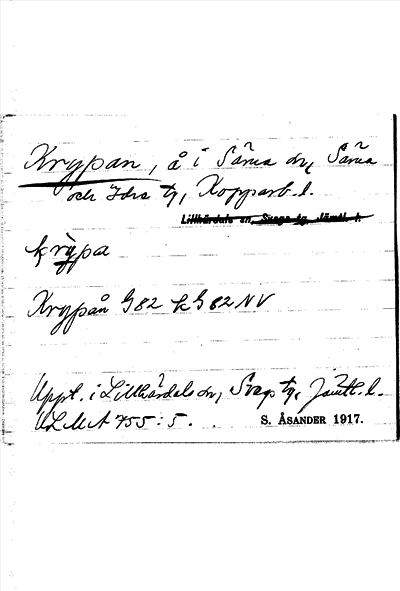 Krypan, å i Särna sn, Särna
och Idre tg, Kopparb. l.
Lillhärdals sn, Svegs tg, Jämtl. l.
krỳpa
Krypån G82 k G82 NV
Uppt. i Lillhärdals sn, Svegs tg, Jämtl. l.
ULMA 755:5. S. ÅSANDER 1917.